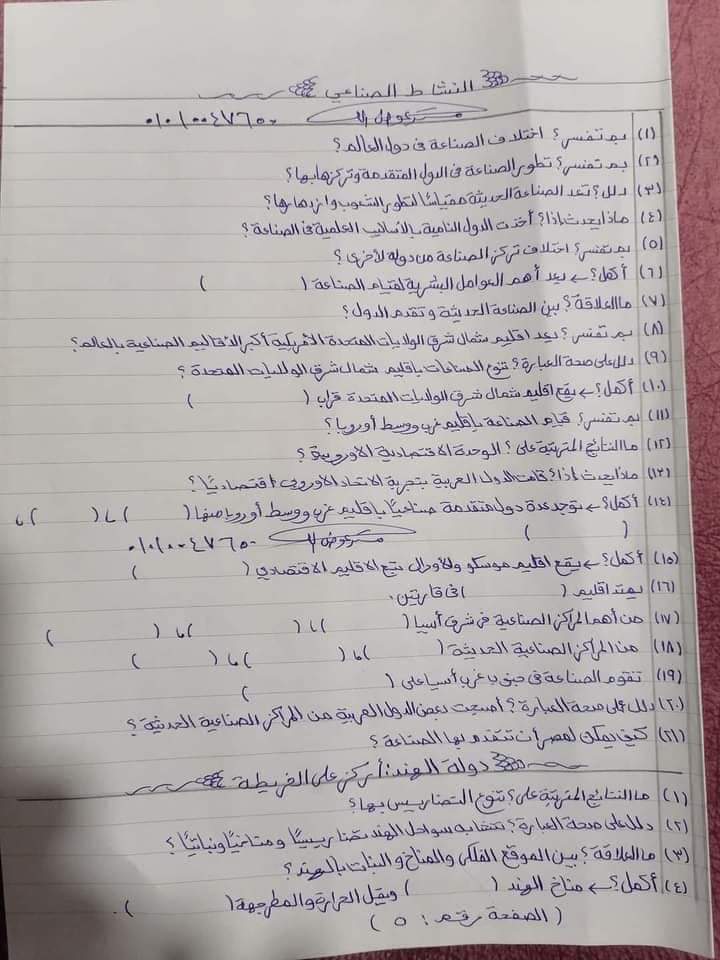 النشاط الصناعي
٠١٠١٠٠٤٧٦٥٠
(١) بم تفسر؟ اختلاف الصناعة فى دول العالم؟
(٢) بم تفسر؟ تطور الصناعة فى الدول المتقدمة وتركزها بها؟
(٣) دلل؟ تعد الصناعة الحديثة مقياسًا لتطور الشعوب وازدهارها؟
(٤) ماذا يحدث إذا؟ أخذت الدول النامية بالأساليب العلمية فى الصناعة؟
(٥) بم تفسر؟ اختلاف تركز الصناعة من دولة لأخرى؟
(٦) أكمل؟ ← يعد أهم العوامل البشرية لقيام الصناعة ( )
(٧) ما العلاقة؟ بين الصناعة الحديثة وتقدم الدول؟
(٨) بم تفسر؟ يعد اقليم شمال شرق الولايات المتحدة الأمريكية أكبر الأقاليم الصناعية بالعالم؟
(٩) دلل على صحة العبارة؟ تنوع الصناعات بإقليم شمال شرق الولايات المتحدة؟
(١٠) أكمل؟ ← يقع اقليم شمال شرق الولايات المتحدة قرب ( )
(١١) بم تفسر؟ قيام الصناعة بإقليم غرب ووسط أوروبا؟
(١٢) ما النتائج المترتبة على؟ الوحدة الاقتصادية الأوروبية؟
(١٣) ماذا يحدث إذا؟ قامت الدول العربية بتجربة الاتحاد الأوروبى اقتصاديًا؟
(١٤) أكمل؟ ← توجد عدة دول متقدمة صناعيًا بإقليم غرب ووسط أوروبا منها ( )، ( )،
( ) ٠١٠١٠٠٤٧٦٥٠
(١٥) أكمل؟ ← يقع اقليم موسكو والأورال يتبع الاقليم الاقتصادي ( )
(١٦) يمتد اقليم ( ) فى قارتين.
(١٧) من أهم المراكز الصناعية فى شرق أسيا ( )، ( )، ( )
(١٨) من المراكز الصناعية الحديثة ( )، ( )، ( )
(١٩) تقوم الصناعة فى جنوب غرب أسيا على ( )
(٢٠) دلل على صحة العبارة؟ أصبحت بعض الدول العربية من المراكز الصناعية الحديثة؟
(٢١) كيف يمكن لمصر أن تتقدم بها الصناعة؟
دولة الهند: أركز على الخريطة
(١) ما النتائج المترتبة على؟ تنوع التضاريس بها؟
(٢) دلل على صحة العبارة؟ تتشابه سواحل الهند تضاريسيًا ومناخيًا ونباتيًا؟
(٣) ما العلاقة؟ بين الموقع الفلكى والمناخ والنبات بالهند؟
(٤) أكمل؟ ← مناخ الهند ( ) وتقل الحرارة والمطر جهة ( ).
(الصفحة رقم: ٥)